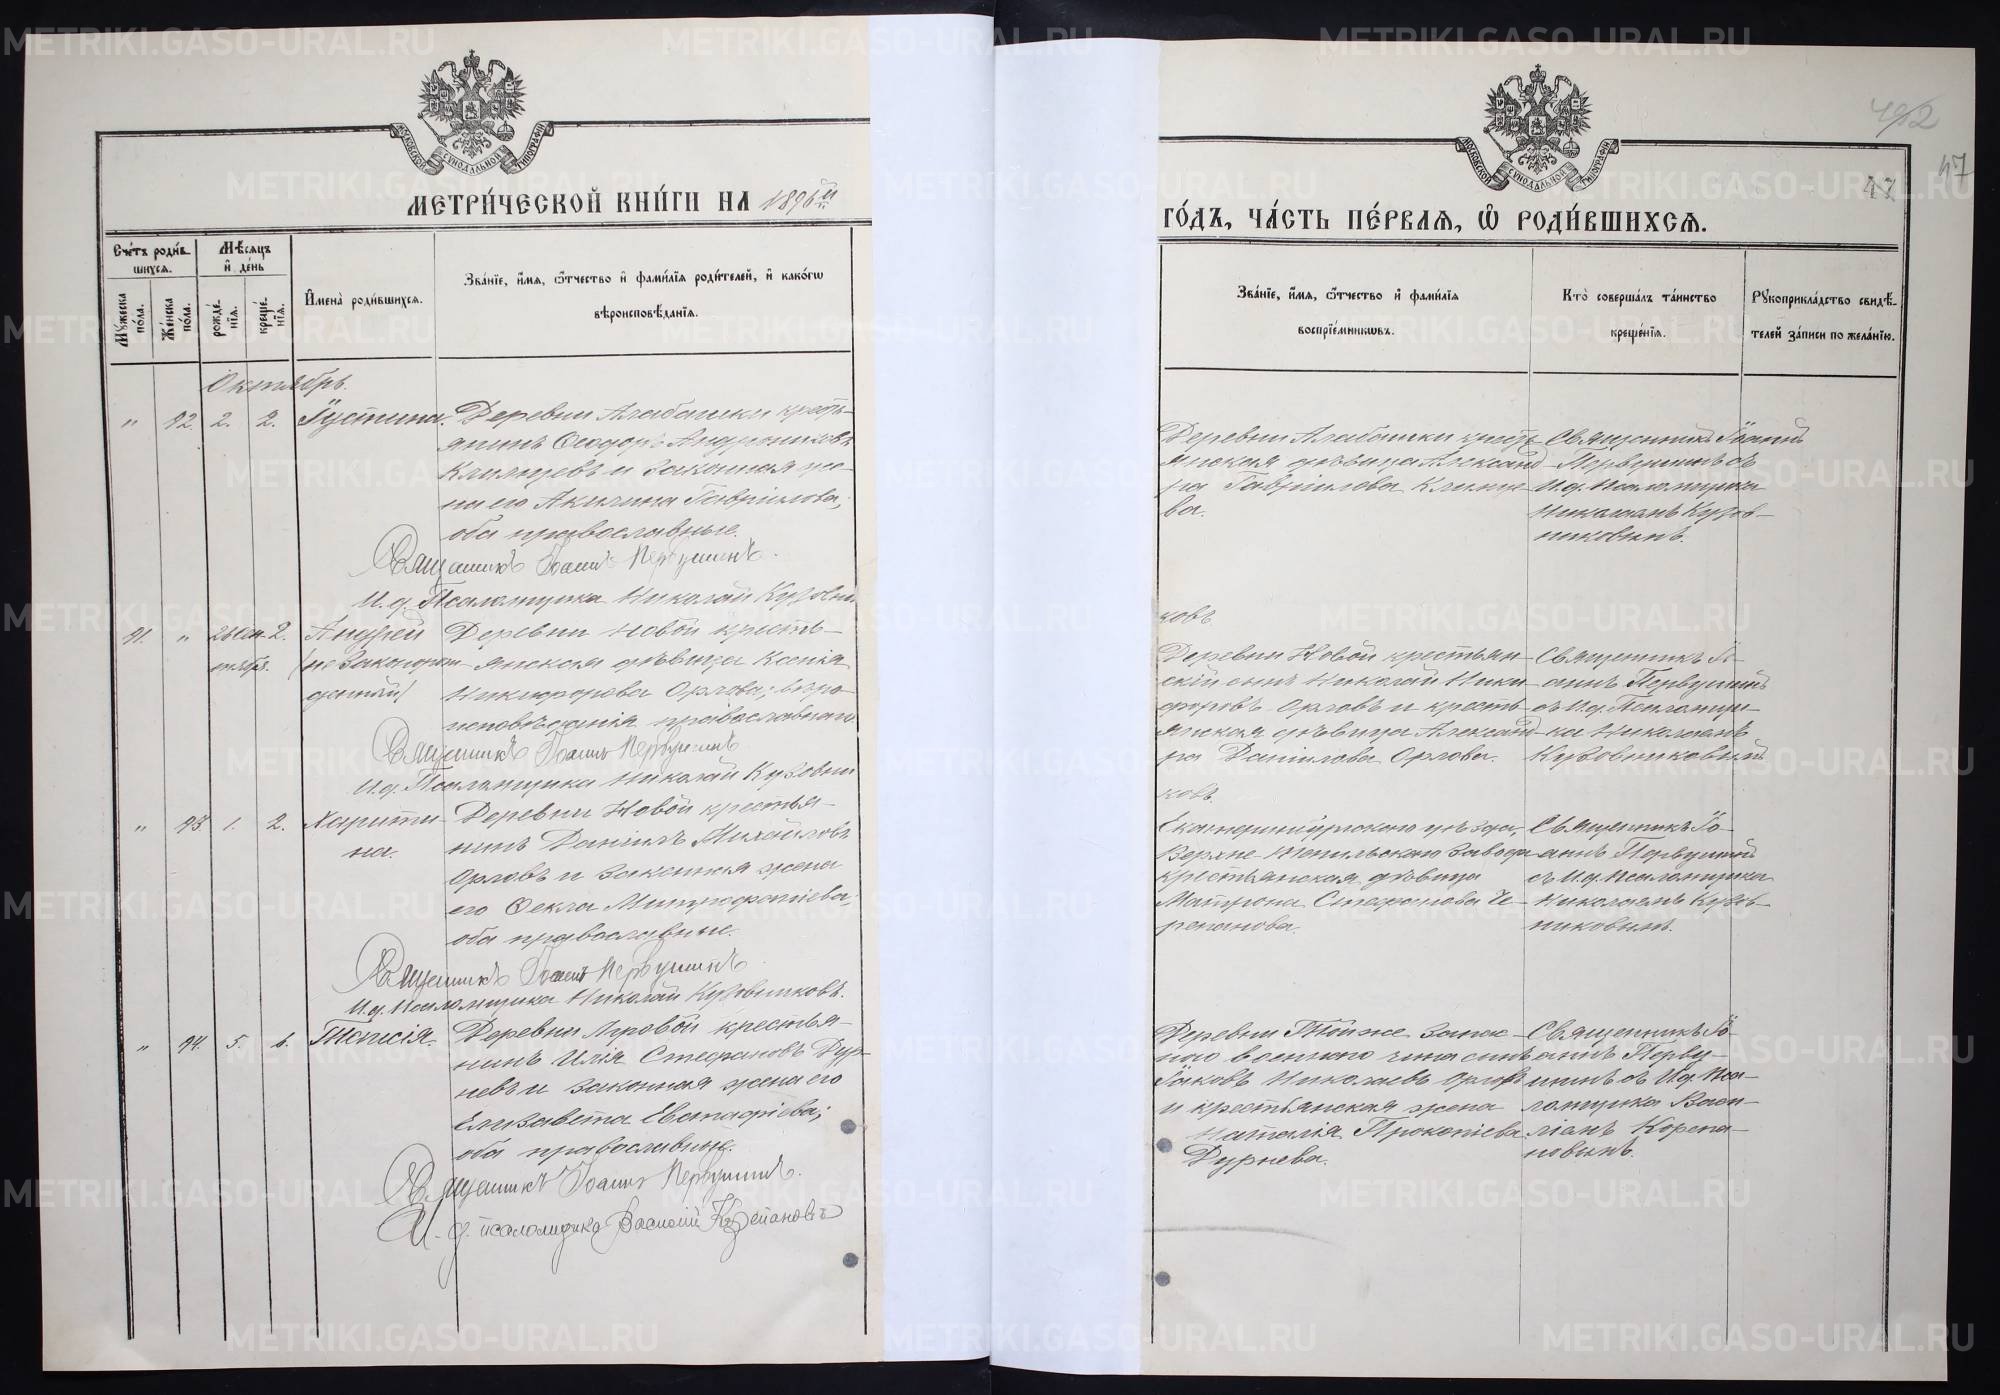 МЕТРИ́ЧЕСКОЙ КНИ́ГИ НА 1896 й
ГО́ДЪ, ЧА́СТЬ ПЕ́РВАЯ, Ѡ҆ РОДИ́ВШИХСЯ.
492
47
47
МОСКОВСКОЙ СѴНОДАЛЬНОЙ ТИПОГРАФІИ
МОСКОВСКОЙ СѴНОДАЛЬНОЙ ТИПОГРАФІИ
Сче́тъ роди́вшихся.
Мѣ́сяцъ и҆ де́нь
Мꙋ́жеска по́ла.
Же́нска по́ла.
рожде́нїя.
креще́нїя.
И҆мена̀ роди́вшихся.
Зва́нїе, и҆́мя, ѻ҆́тчество и҆ фами́лїя роди́телей, и҆ како́гѡ
вѣроисповѣ́данїя.
Зва́нїе, и҆́мя, ѻ҆́тчество и҆ фами́лїя
воспрїе́мникѡвъ.
Кто̀ соверша́лъ та́инство
креще́нїя.
Рꙋкоприкла́дство свидѣ́-
телей за́писи по жела́нїю.
Октябрь.
" 92. 2. 2. Іустина. Деревни Алабашки кресть-
янинъ Ѳеодоръ Андрониковъ
Климцевъ и законная же-
на его Акилина Гавріилова;
оба православные.
Священникъ Іоаннъ Первушинъ.
И.д. Псаломщика Николай Кузовни
Деревни Алабашки кресть
янская дѣвица Александ
ра Гавріилова Климце
ва.
Священникъ Іоаннъ
Первушинъ съ
И.д. Псаломщика
Николаемъ Кузов-
никовымъ.
ковъ
91. " 28 Сен- 2. Андрей Деревни Новой кресть-
тября. (незаконорож- янская дѣвица Ксенія
денный) Никифорова Орлова; вѣро-
исповѣданія православнаго
Священникъ Іоаннъ Первушинъ
И.д. Псаломщика Николай Кузовни
Деревни Новой крестьян-
скій сынъ Николай Ники
форовъ Орловъ и кресть-
янская дѣвица Александ-
ра Даніилова Орлова.
Священникъ Іо-
аннъ Первушинъ
съ И.д. Псаломщи-
ка Николаемъ
Кузовниковымъ
ковъ.
" 93. 1. 2. Харити- Деревни Новой крестья-
на. нинъ Даніилъ Михайловъ
Орловъ и законная жена
его Ѳекла Митрофаніева;
оба православные.
Священникъ Іоаннъ Первушинъ
И.д. Псаломщика Николай Кузовниковъ.
Екатеринбургскаго уѣзда,
Верхне-Тагильскаго завода
крестьянская дѣвица
Матрона Стефанова Че-
репанова.
Священникъ Іо-
аннъ Первушинъ
съ И.д. Псаломщика
Николаемъ Кузов-
никовымъ.
" 94. 5. 6. Таисія. Деревни Луговой крестья-
нинъ Илія Стефановъ Дур-
невъ и законная жена его
Елизавета Евстафіева;
оба православные.
Священникъ Іоаннъ Первушинъ.
И.д. псаломщика Василій Корепановъ
Деревни той же запас-
наго военнаго чина сынъ
Іаковъ Николаевъ Орловъ
и крестьянская жена
Наталія Прокопіева
Дурнева.
Священникъ Іо-
аннъ Перву-
шинъ съ И.д. Пса-
ломщика Васи-
ліемъ Корепа-
новымъ.